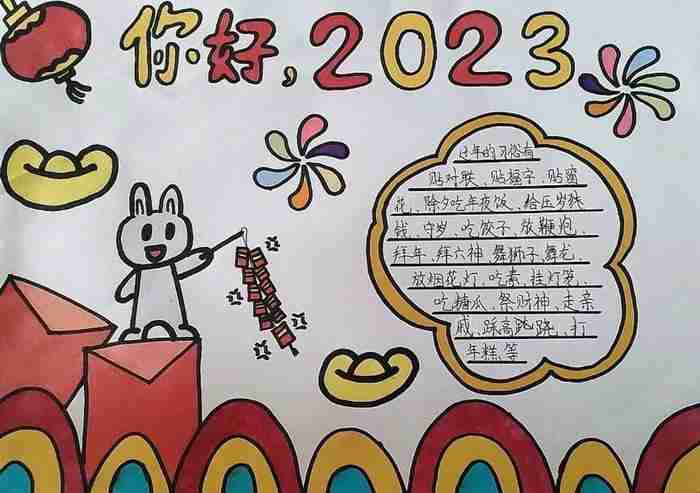 你好,2023
过年的习俗有
贴对联、贴福字、贴窗
花、除夕吃年夜饭、给压岁钱
钱、守岁、吃饺子、放鞭炮、
拜年、拜六神、舞狮子、舞龙、
放烟花、灯、吃素、挂灯笼、
吃糖瓜、祭财神、走亲
戚、踩高跳跷、打
年糕、等